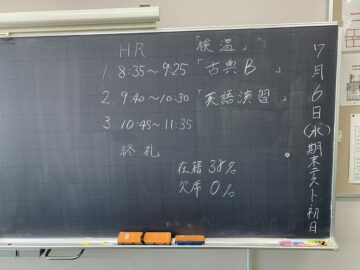 7月6日(水)期末テスト初日
HR 「検温」
1. 8:35〜9:25 「古典B」
2. 9:40〜10:30 「英語演習」
3. 10:45〜11:35
終礼
在籍 38名
欠席 0名